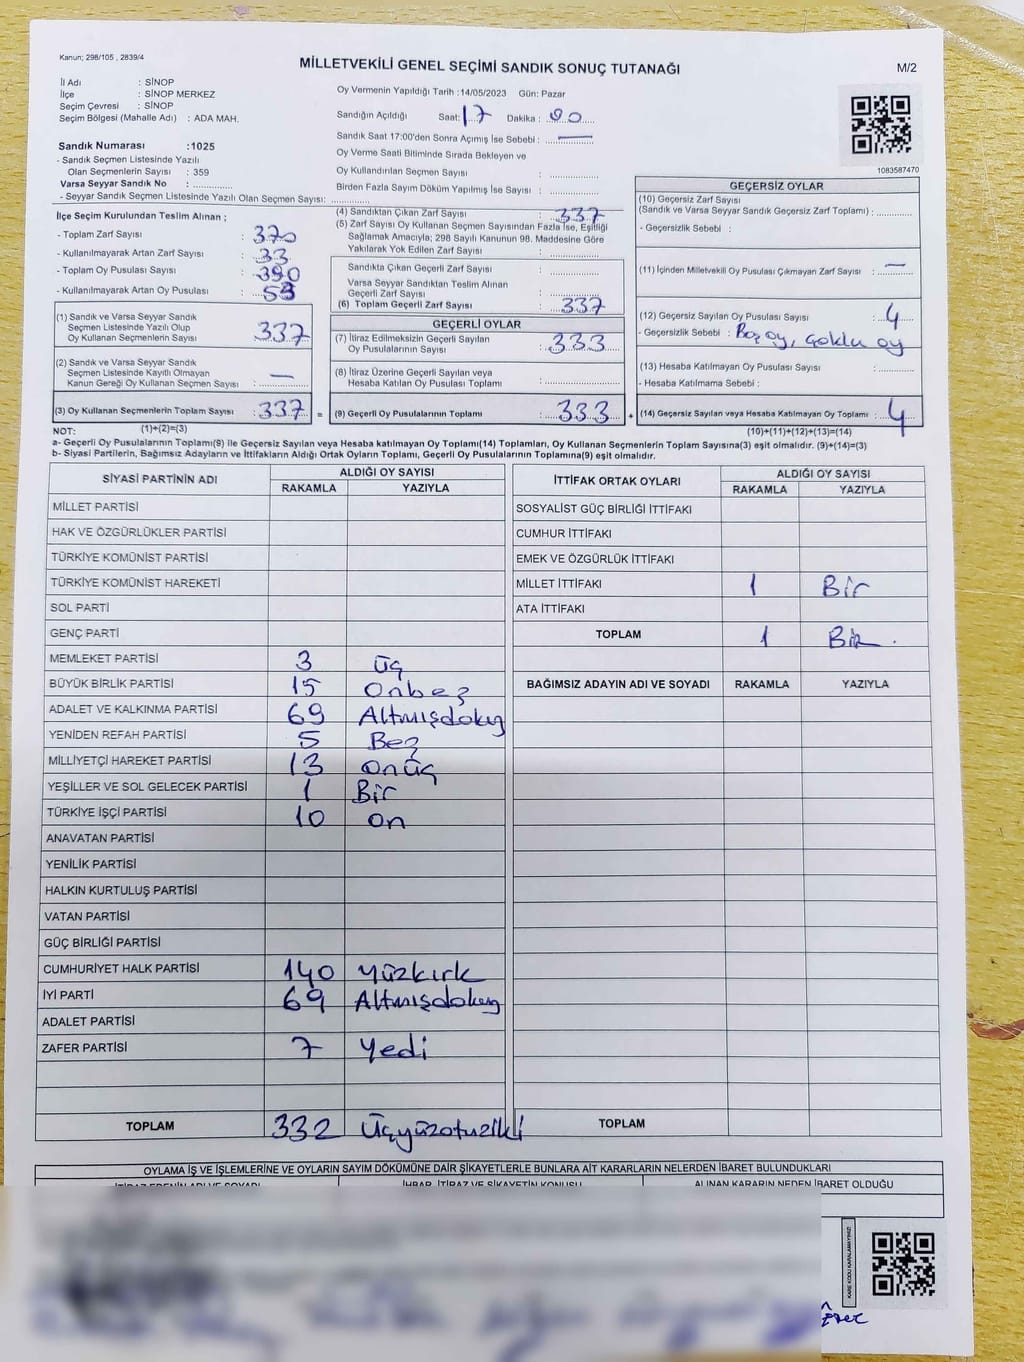 Kanun; 298/105 , 2839/4
MİLLETVEKİLİ GENEL SEÇİMİ SANDIK SONUÇ TUTANAĞI
M/2
İl Adı : SİNOP
İlçe : SİNOP MERKEZ
Seçim Çevresi : SİNOP
Seçim Bölgesi (Mahalle Adı) : ADA MAH.
Sandık Numarası :1025
- Sandık Seçmen Listesinde Yazılı
Olan Seçmenlerin Sayısı : 359
Varsa Seyyar Sandık No :
- Seyyar Sandık Seçmen Listesinde Yazılı Olan Seçmen Sayısı:
Oy Vermenin Yapıldığı Tarih :14/05/2023 Gün: Pazar
Sandığın Açıldığı Saat: 17 Dakika : 00
Sandık Saat 17:00'den Sonra Açımış İse Sebebi : —
Oy Verme Saati Bitiminde Sırada Bekleyen ve
Oy Kullandırılan Seçmen Sayısı :
Birden Fazla Sayım Döküm Yapılmış İse Sayısı :
1083587470
İlçe Seçim Kurulundan Teslim Alınan ;
- Toplam Zarf Sayısı : 370
- Kullanılmayarak Artan Zarf Sayısı : 33
- Toplam Oy Pusulası Sayısı : 390
- Kullanılmayarak Artan Oy Pusulası : 53
(1) Sandık ve Varsa Seyyar Sandık
Seçmen Listesinde Yazılı Olup
Oy Kullanan Seçmenlerin Sayısı : 337
(2) Sandık ve Varsa Seyyar Sandık
Seçmen Listesinde Kayıtlı Olmayan
Kanun Gereği Oy Kullanan Seçmen Sayısı : —
(3) Oy Kullanan Seçmenlerin Toplam Sayısı : 337 =
(4) Sandıktan Çıkan Zarf Sayısı : 337
(5) Zarf Sayısı Oy Kullanan Seçmen Sayısından Fazla İse, Eşitliği
Sağlamak Amacıyla; 298 Sayılı Kanunun 98. Maddesine Göre
Yakılarak Yok Edilen Zarf Sayısı :
Sandıkta Çıkan Geçerli Zarf Sayısı :
Varsa Seyyar Sandıktan Teslim Alınan
Geçerli Zarf Sayısı :
(6) Toplam Geçerli Zarf Sayısı : 337
GEÇERLİ OYLAR
(7) İtiraz Edilmeksizin Geçerli Sayılan
Oy Pusulalarının Sayısı : 333
(8) İtiraz Üzerine Geçerli Sayılan veya
Hesaba Katılan Oy Pusulası Toplamı :
(9) Geçerli Oy Pusulalarının Toplamı : 333 +
GEÇERSİZ OYLAR
(10) Geçersiz Zarf Sayısı
(Sandık ve Varsa Seyyar Sandık Geçersiz Zarf Toplamı) :
- Geçersizlik Sebebi :
(11) İçinden Milletvekili Oy Pusulası Çıkmayan Zarf Sayısı : —
(12) Geçersiz Sayılan Oy Pusulası Sayısı : 4
- Geçersizlik Sebebi : Boş oy, çoklu oy
(13) Hesaba Katılmayan Oy Pusulası Sayısı :
- Hesaba Katılmama Sebebi :
(14) Geçersiz Sayılan veya Hesaba Katılmayan Oy Toplamı : 4
NOT: (1)+(2)=(3) (10)+(11)+(12)+(13)=(14)
a- Geçerli Oy Pusulalarının Toplamı(9) ile Geçersiz Sayılan veya Hesaba katılmayan Oy Toplamı(14) Toplamları, Oy Kullanan Seçmenlerin Toplam Sayısına(3) eşit olmalıdır. (9)+(14)=(3)
b- Siyasi Partilerin, Bağımsız Adayların ve İttifakların Aldığı Ortak Oyların Toplamı, Geçerli Oy Pusulalarının Toplamına(9) eşit olmalıdır.
SİYASİ PARTİNİN ADI ALDIĞI OY SAYISI
RAKAMLA YAZIYLA
MİLLET PARTİSİ
HAK VE ÖZGÜRLÜKLER PARTİSİ
TÜRKİYE KOMÜNİST PARTİSİ
TÜRKİYE KOMÜNİST HAREKETİ
SOL PARTİ
GENÇ PARTİ
MEMLEKET PARTİSİ 3 Üç
BÜYÜK BİRLİK PARTİSİ 15 Onbeş
ADALET VE KALKINMA PARTİSİ 69 Altmışdokuz
YENİDEN REFAH PARTİSİ 5 Beş
MİLLİYETÇİ HAREKET PARTİSİ 13 Onüç
YEŞİLLER VE SOL GELECEK PARTİSİ 1 Bir
TÜRKİYE İŞÇİ PARTİSİ 10 On
ANAVATAN PARTİSİ
YENİLİK PARTİSİ
HALKIN KURTULUŞ PARTİSİ
VATAN PARTİSİ
GÜÇ BİRLİĞİ PARTİSİ
CUMHURİYET HALK PARTİSİ 140 Yüzkırk
İYİ PARTİ 69 Altmışdokuz
ADALET PARTİSİ
ZAFER PARTİSİ 7 Yedi
TOPLAM 332 Üçyüzotuziki
İTTİFAK ORTAK OYLARI ALDIĞI OY SAYISI
RAKAMLA YAZIYLA
SOSYALİST GÜÇ BİRLİĞİ İTTİFAKI
CUMHUR İTTİFAKI
EMEK VE ÖZGÜRLÜK İTTİFAKI
MİLLET İTTİFAKI 1 Bir
ATA İTTİFAKI
TOPLAM 1 Bir .
BAĞIMSIZ ADAYIN ADI VE SOYADI RAKAMLA YAZIYLA
TOPLAM
OYLAMA İŞ VE İŞLEMLERİNE VE OYLARIN SAYIM DÖKÜMÜNE DAİR ŞİKAYETLERLE BUNLARA AİT KARARLARIN NELERDEN İBARET BULUNDUKLARI
İTİRAZ EDENİN ADI VE SOYADI İHBAR, İTİRAZ VE ŞİKAYETİN KONUSU ALINAN KARARIN NEDEN İBARET OLDUĞU
KARE KODU KARALAMAYINIZ